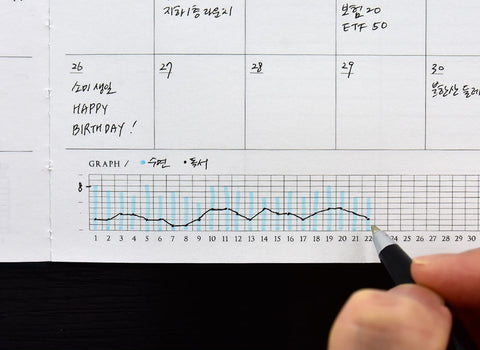 지하1층 라운지
보험 20
ETF 50
26
27
28
29
30
소미 생일
HAPPY
BIRTHDAY !
북한산 둘레
GRAPH / • 수면 • 독서
8
1 2 3 4 5 6 7 8 9 10 11 12 13 14 15 16 17 18 19 20 21 22 24 25 26 27 28 29 30